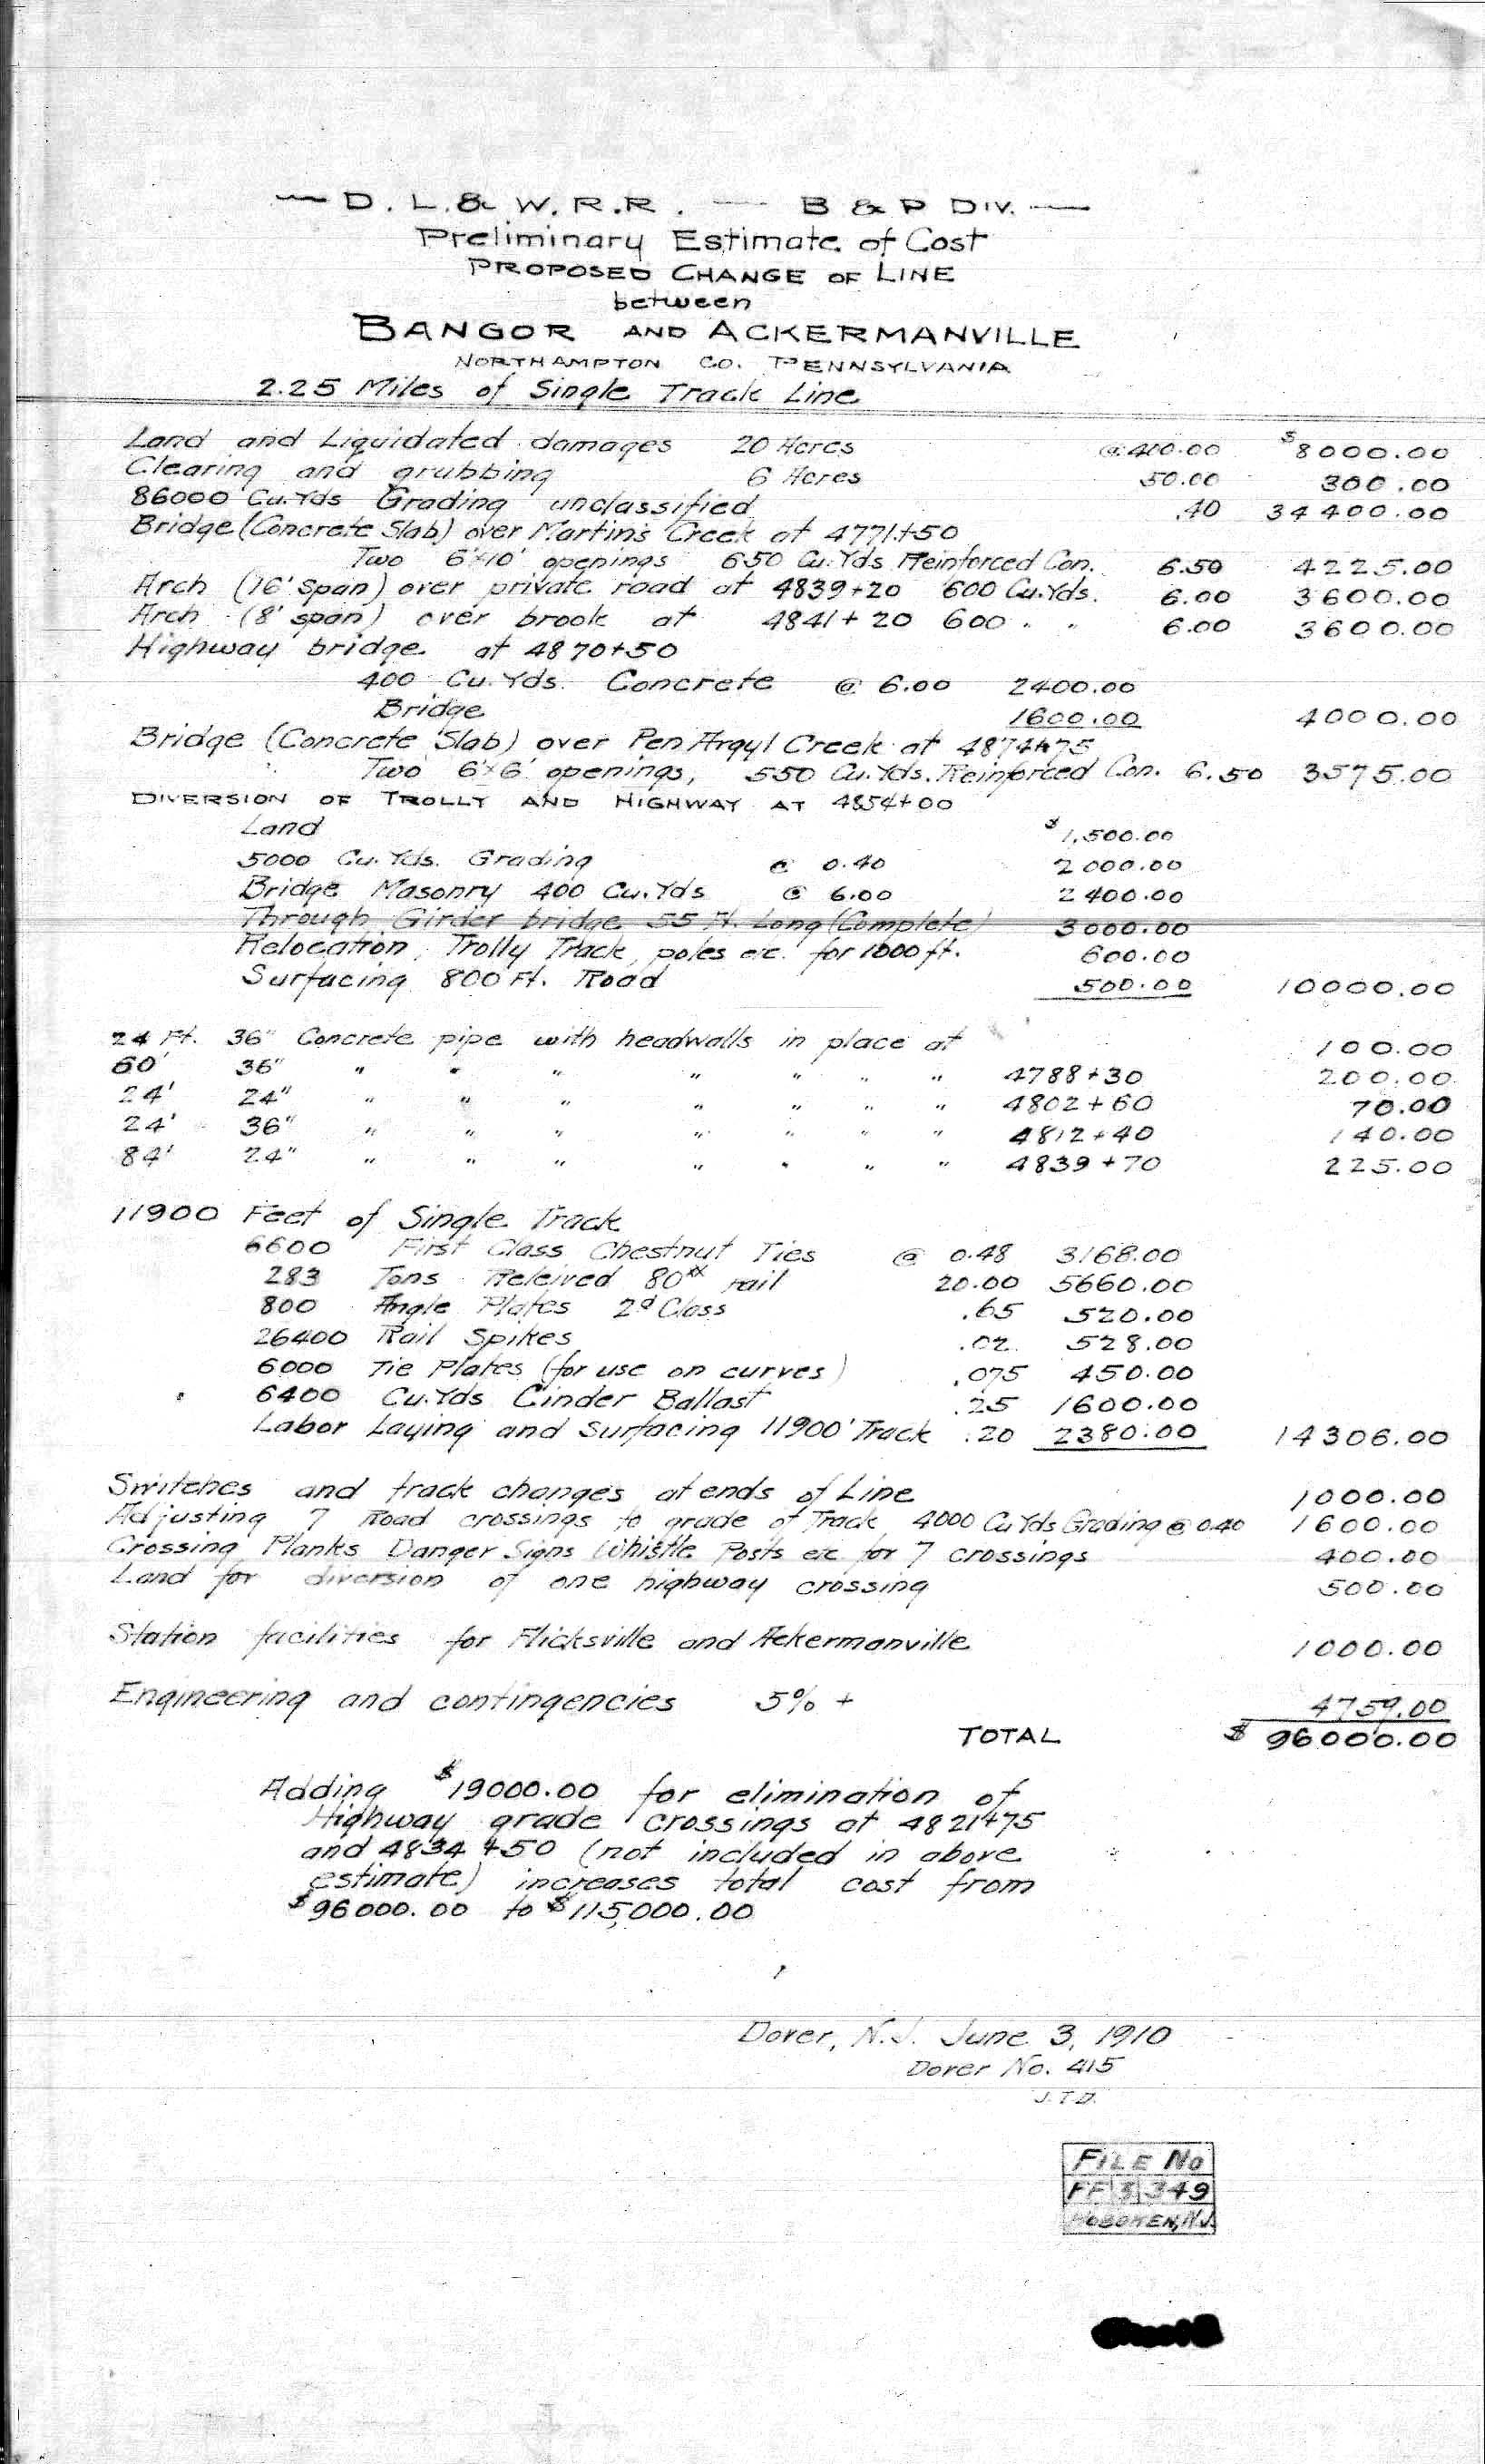 D. L. & W. R. R. — B & P Div.
Preliminary Estimate of Cost
Proposed Change of Line
between
Bangor and Ackermanville
Northampton Co. Pennsylvania
2.25 Miles of Single Track Line
Land and Liquidated damages 20 Acres @ 400.00 $8000.00
Clearing and grubbing 6 Acres 50.00 300.00
86000 Cu. Yds Grading unclassified .40 34400.00
Bridge (Concrete Slab) over Martin's Creek at 4771+50
Two 6'x10' openings 650 Cu. Yds Reinforced Con. 6.50 4225.00
Arch (16' Span) over private road at 4839+20 600 Cu. Yds. 6.00 3600.00
Arch (8' span) over brook at 4841+20 600 " " 6.00 3600.00
Highway bridge at 4870+50
400 Cu. Yds. Concrete @ 6.00 2400.00
Bridge 1600.00 4000.00
Bridge (Concrete Slab) over Pen Argyl Creek at 4874+75
Two 6'x6' openings, 550 Cu. Yds. Reinforced Con. 6.50 3575.00
Diversion of Trolly and Highway at 4854+00
Land $1,500.00
5000 Cu. Yds. Grading @ 0.40 2000.00
Bridge Masonry 400 Cu. Yds @ 6.00 2400.00
Through Girder bridge 55 Ft. Long (Complete) 3000.00
Relocation, Trolly Track, poles etc. for 1000 ft. 600.00
Surfacing 800 Ft. Road 500.00 10000.00
24 Ft. 36" Concrete pipe with headwalls in place at 100.00
60' 36" " " " " " " " 4788+30 200.00
24' 24" " " " " " " " 4802+60 70.00
24' 36" " " " " " " " 4812+40 140.00
84' 24" " " " " " " " 4839+70 225.00
11900 Feet of Single Track
6600 First Class Chestnut Ties @ 0.48 3168.00
283 Tons Releived 80# rail 20.00 5660.00
800 Angle Plates 2d Class .65 520.00
26400 Rail Spikes .02 528.00
6000 Tie Plates (for use on curves) .075 450.00
6400 Cu. Yds Cinder Ballast .25 1600.00
Labor Laying and Surfacing 11900' Track .20 2380.00 14306.00
Switches and track changes at ends of Line 1000.00
Adjusting 7 Road crossings to grade of Track, 4000 Cu Yds Grading @ 0.40 1600.00
Crossing Planks Danger Signs Whistle Posts etc for 7 crossings 400.00
Land for diversion of one highway crossing 500.00
Station facilities for Flicksville and Ackermanville 1000.00
Engineering and contingencies 5% + 4759.00
TOTAL $96000.00
Adding $19000.00 for elimination of
Highway grade crossings at 4821+75
and 4834+50 (not included in above
estimate) increases total cost from
$96000.00 to $115,000.00
Dover, N.J. June 3, 1910
Dover No. 415
J.T.D.
FILE No
FF 3 349
HOBOKEN, N.J.